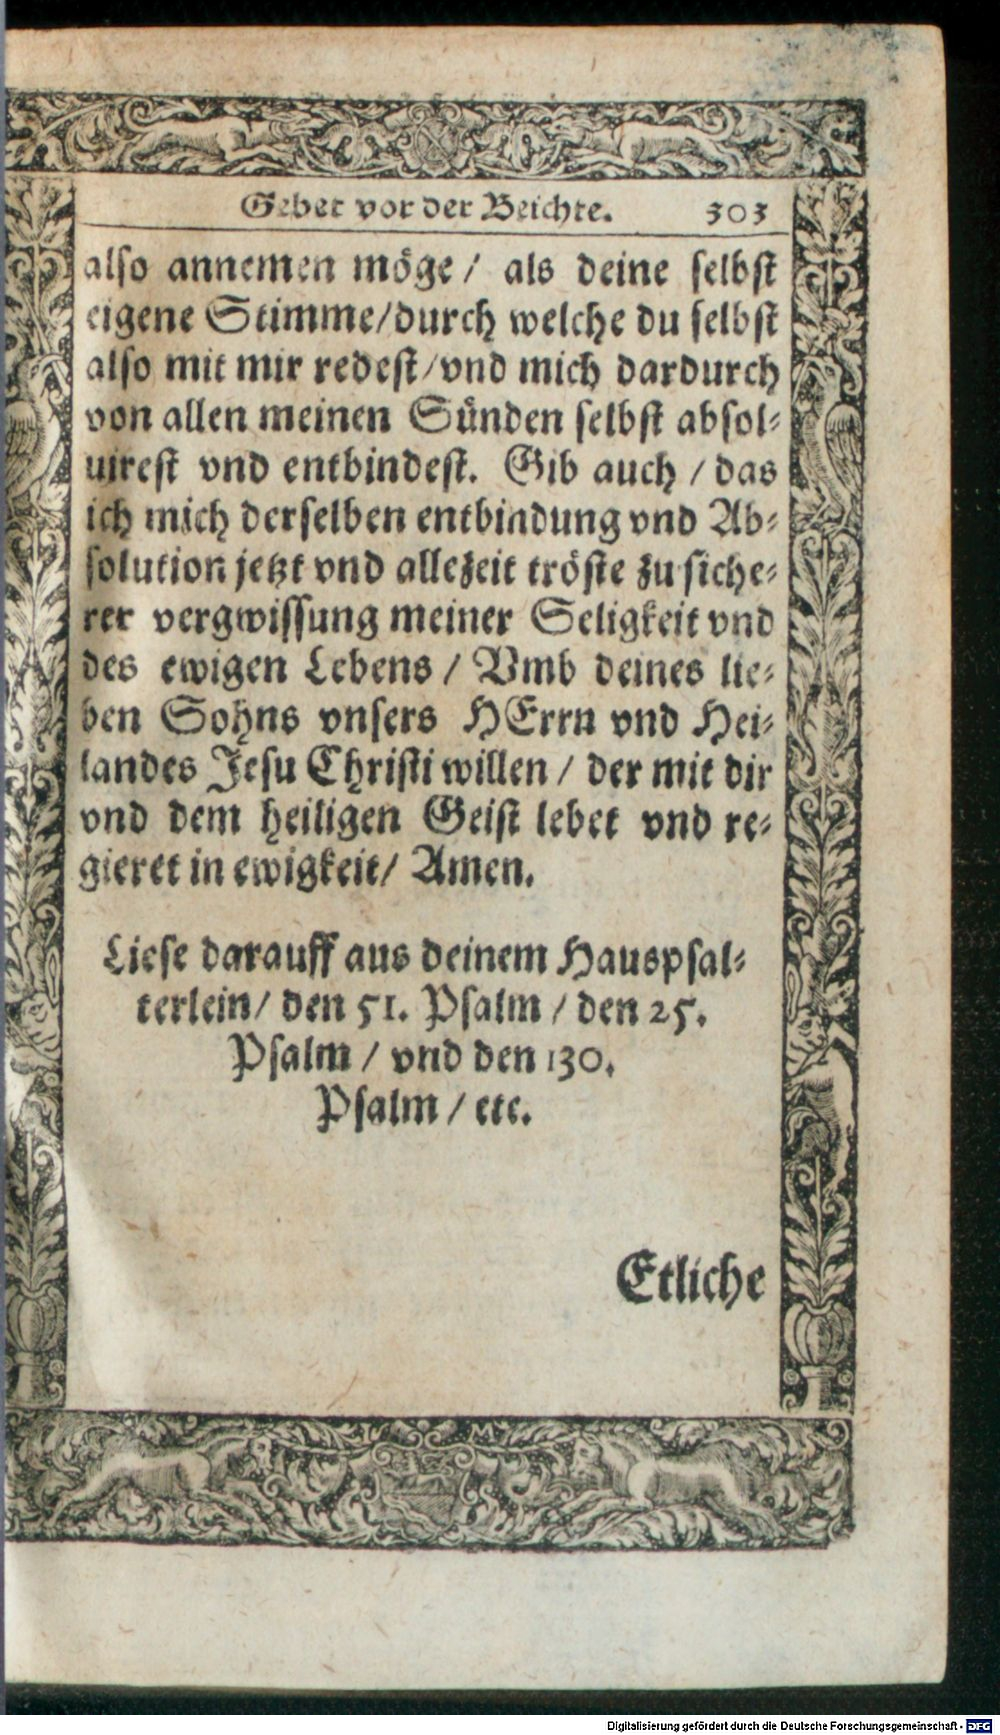 Gebet vor der Beichte. 303
also annemen möge / als deine selbst
eigene Stimme/durch welche du selbst
also mit mir redest/vnd mich dardurch
von allen meinen Sünden selbst absol-
uirest vnd entbindest. Gib auch / das
ich mich derselben entbindung vnd Ab-
solution jetzt vnd allezeit tröste zu siche-
rer vergwissung meiner Seligkeit vnd
des ewigen Lebens / Vmb deines lie-
ben Sohns vnsers HErrn vnd Hei-
landes Jesu Christi willen / der mit dir
vnd dem heiligen Geist lebet vnd re-
gieret in ewigkeit/ Amen.
Liese darauff aus deinem Hauspsal-
terlein/ den 51. Psalm / den 25.
Psalm / vnd den 130.
Psalm / etc.
Etliche
Digitalisierung gefördert durch die Deutsche Forschungsgemeinschaft - DFG